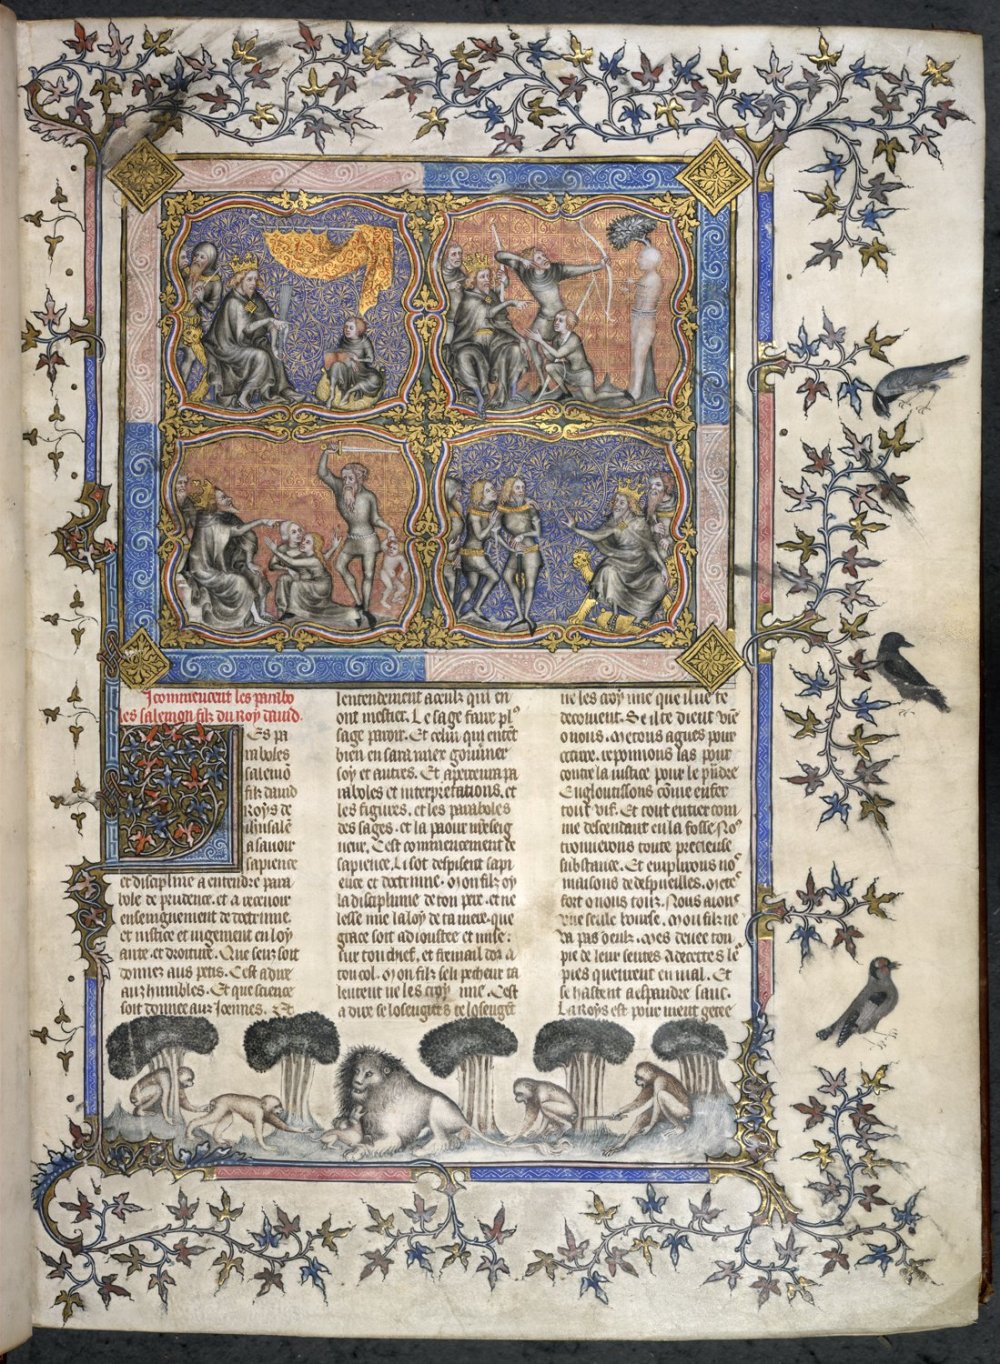 Icommencent les parabo
les salemon filz du Roy dauid.
Es pa
raboles
salemõ
filz dauid
Roys de
ihrusalẽ
a sauoir
sapience
et discipline a entendre para
bole de prudence. et a receuoir
enseignement de doctrine.
et iustice et iugement en loy
ante. et droiture. Que sens soit
donnez aus petis. Cest a dire
aux humbles. Et que science
soit donnee aux Joennes. Et
lentendement a ceulz qui en
ont mestier. Le sage
sage Et celui qui entẽt
bien en sara miex gouuner
soy et autres. Et
raboles et interpretations, et
les figures, et les paraboles
des sages. et la paour nrẽ seig
neur. Cest commencement de
sapience. Li sot despisent sapi
ence et doctrine. Mon filz oy
la discipline de ton pere. et ne
lesse mie la loy de ta mere. que
grace soit adioustee et mise
sur ton chief, et fremail dor a
ton col. Mon filz se li pecheur ta
leutent ne les croy mie. Cest
a dire se losengiers te losengẽt
ne les croy mie que il ne te
decoiuent. Se il te dient viẽ
o nous. Metons agues pour
occirre. reponnons las pour
contre la iustice pour le
Engloutissons cõme enfer
tout vif. Et tout entier com
me descendant en la fosse. Noꝰ
trouuerons toute precieuse
substance. Et emplirons noꝰ
maisons de despueilles. Mete
sort o nous touz. Nous aions
vne seule bourse. Mon filz ne
va pas deulz. Mes deuee ton
pie de leur sentes. Adecertes lẽ
pies queurent en mal. Et
se hastent a espandre sanc.
La Roys est pour nient getee